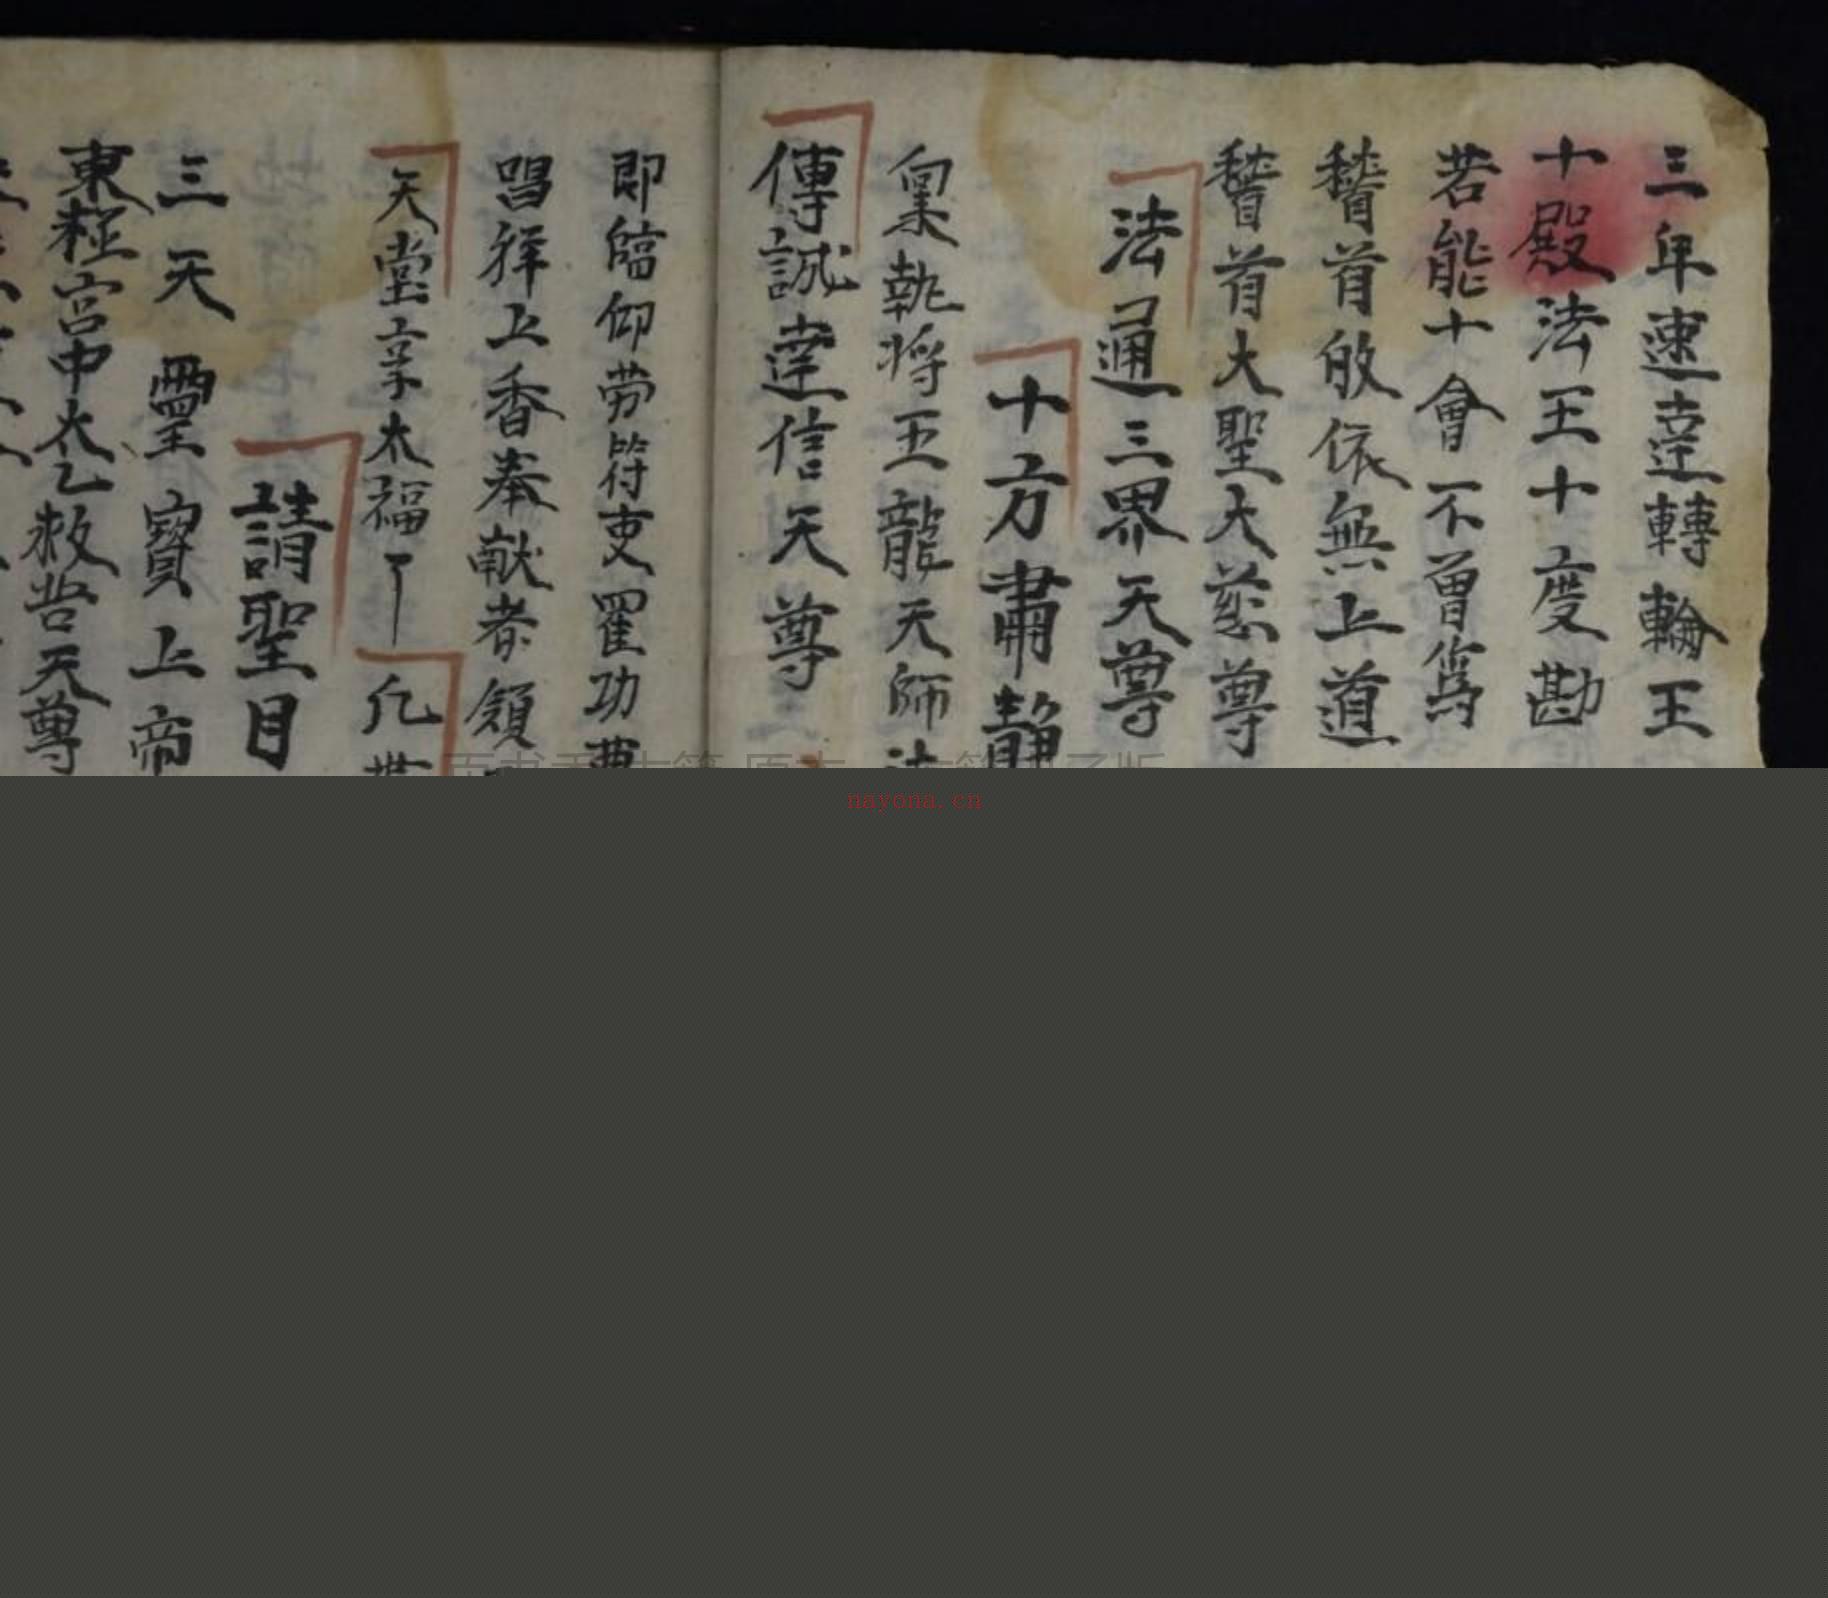 三年速達轉輪王
十殿法王十度勘
若能十會不曾為
稽首皈依無上道
稽首大聖大慈尊
法通三界天尊
十方肅靜
稟執將王龍天師法
傳誠達信天尊
即臨仰勞符吏罷功曹
唱祥上香奉献者領
天堂享太福
凡
請聖目
三天 寶上帝
東極宮中太乙救苦天尊
nayona.cn